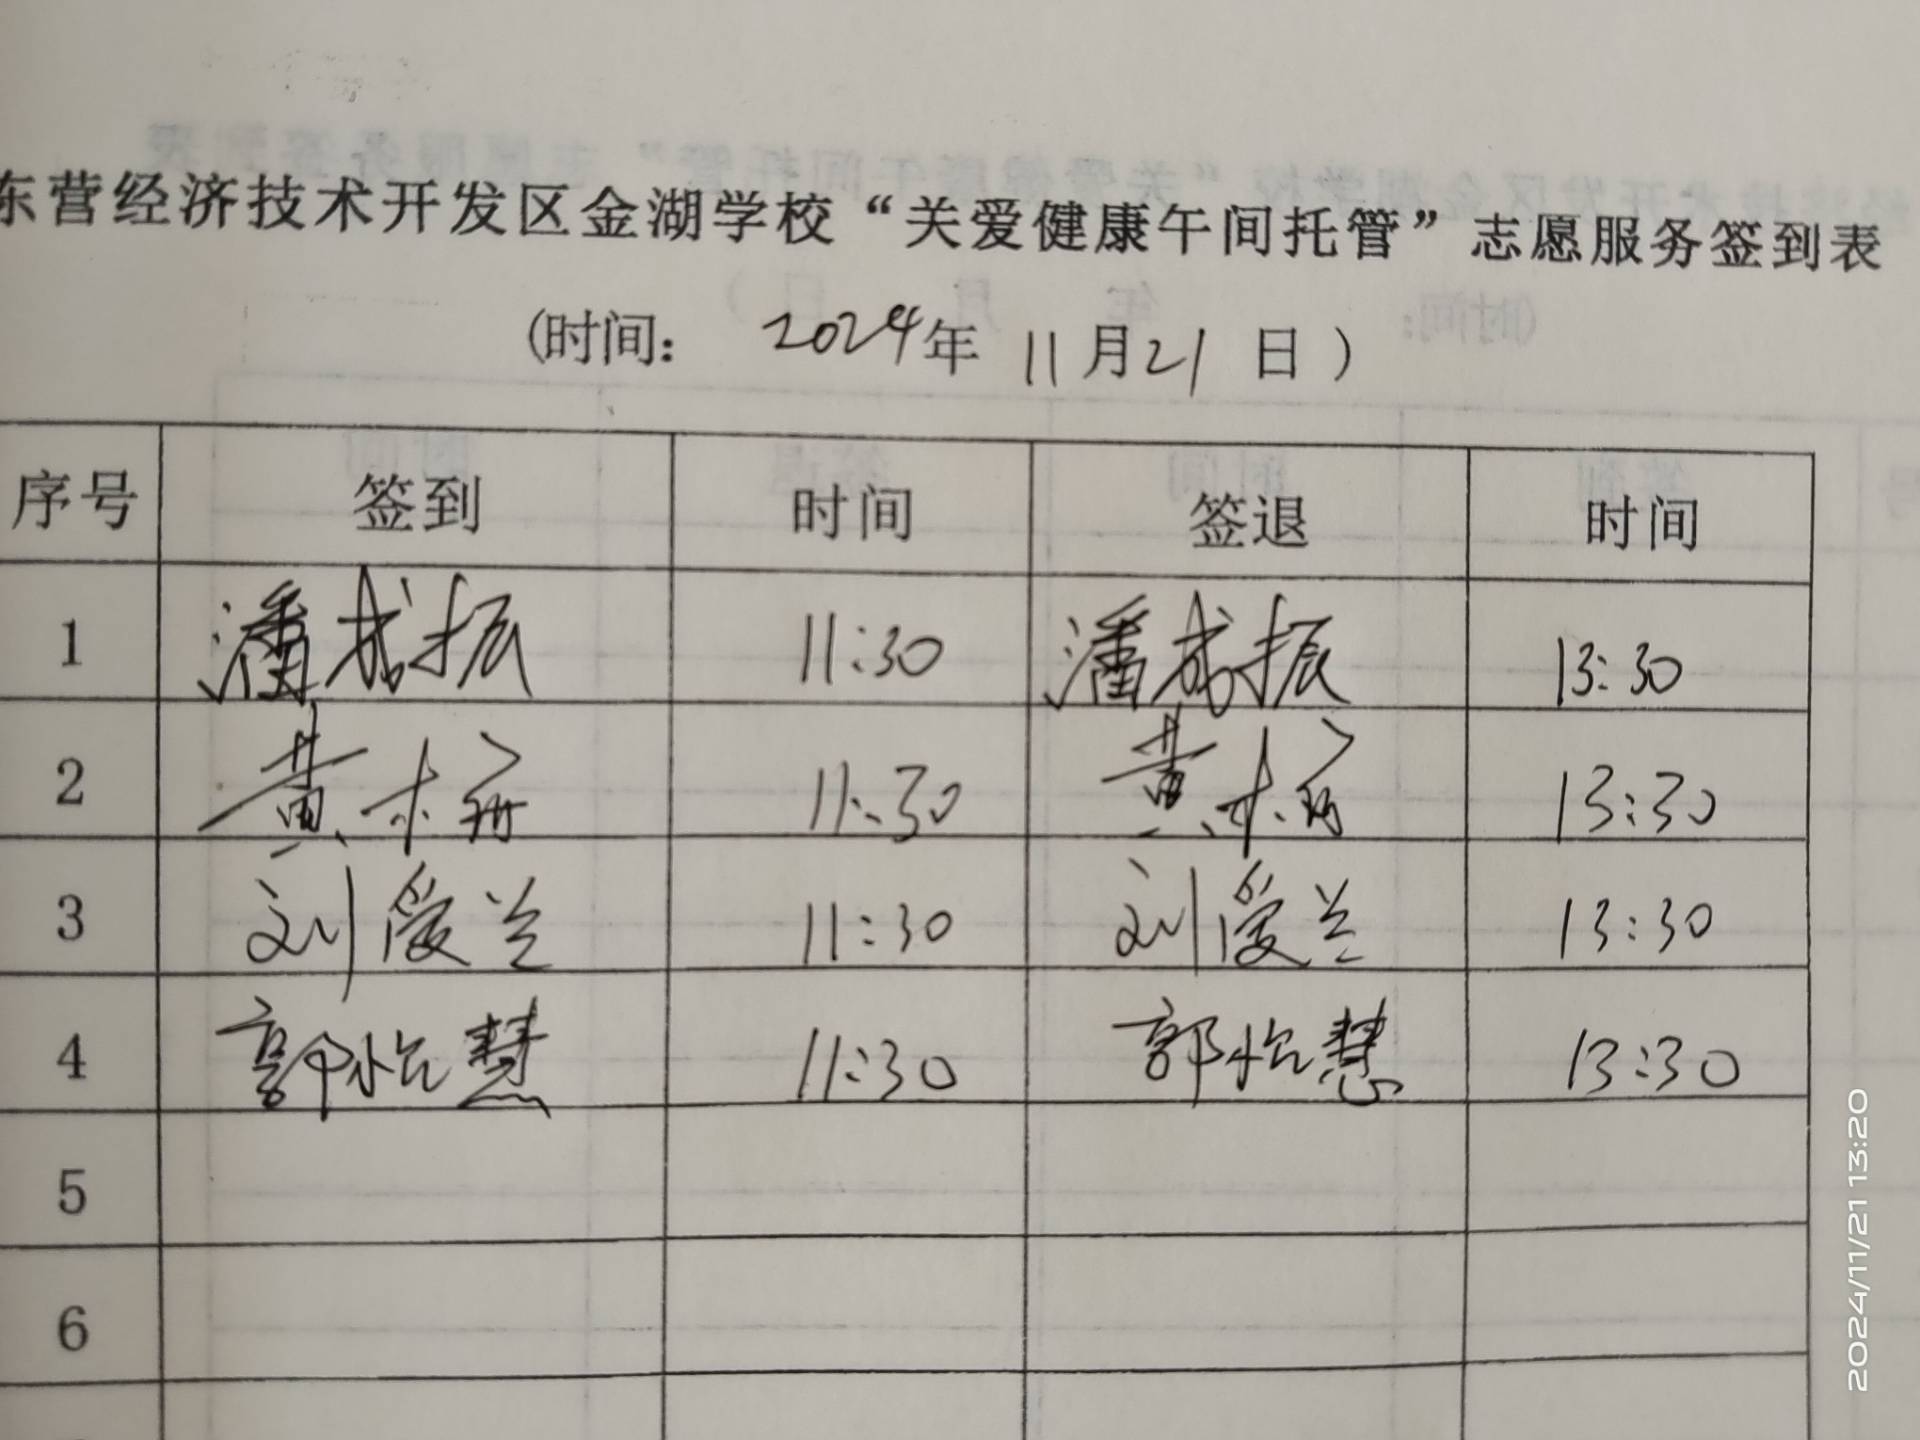 东营经济技术开发区金湖学校“关爱健康午间托管”志愿服务签到表
(时间： 2024年 11月21日 )
序号 签到 时间 签退 时间
1 潘成振 11:30 潘成振 13:30
2 黄 11:30 黄 13:30
3 刘爱兰 11:30 刘爱兰 13:30
4 郭怡慧 11:30 郭怡慧 13:30
5
6
2024/11/21 13:20